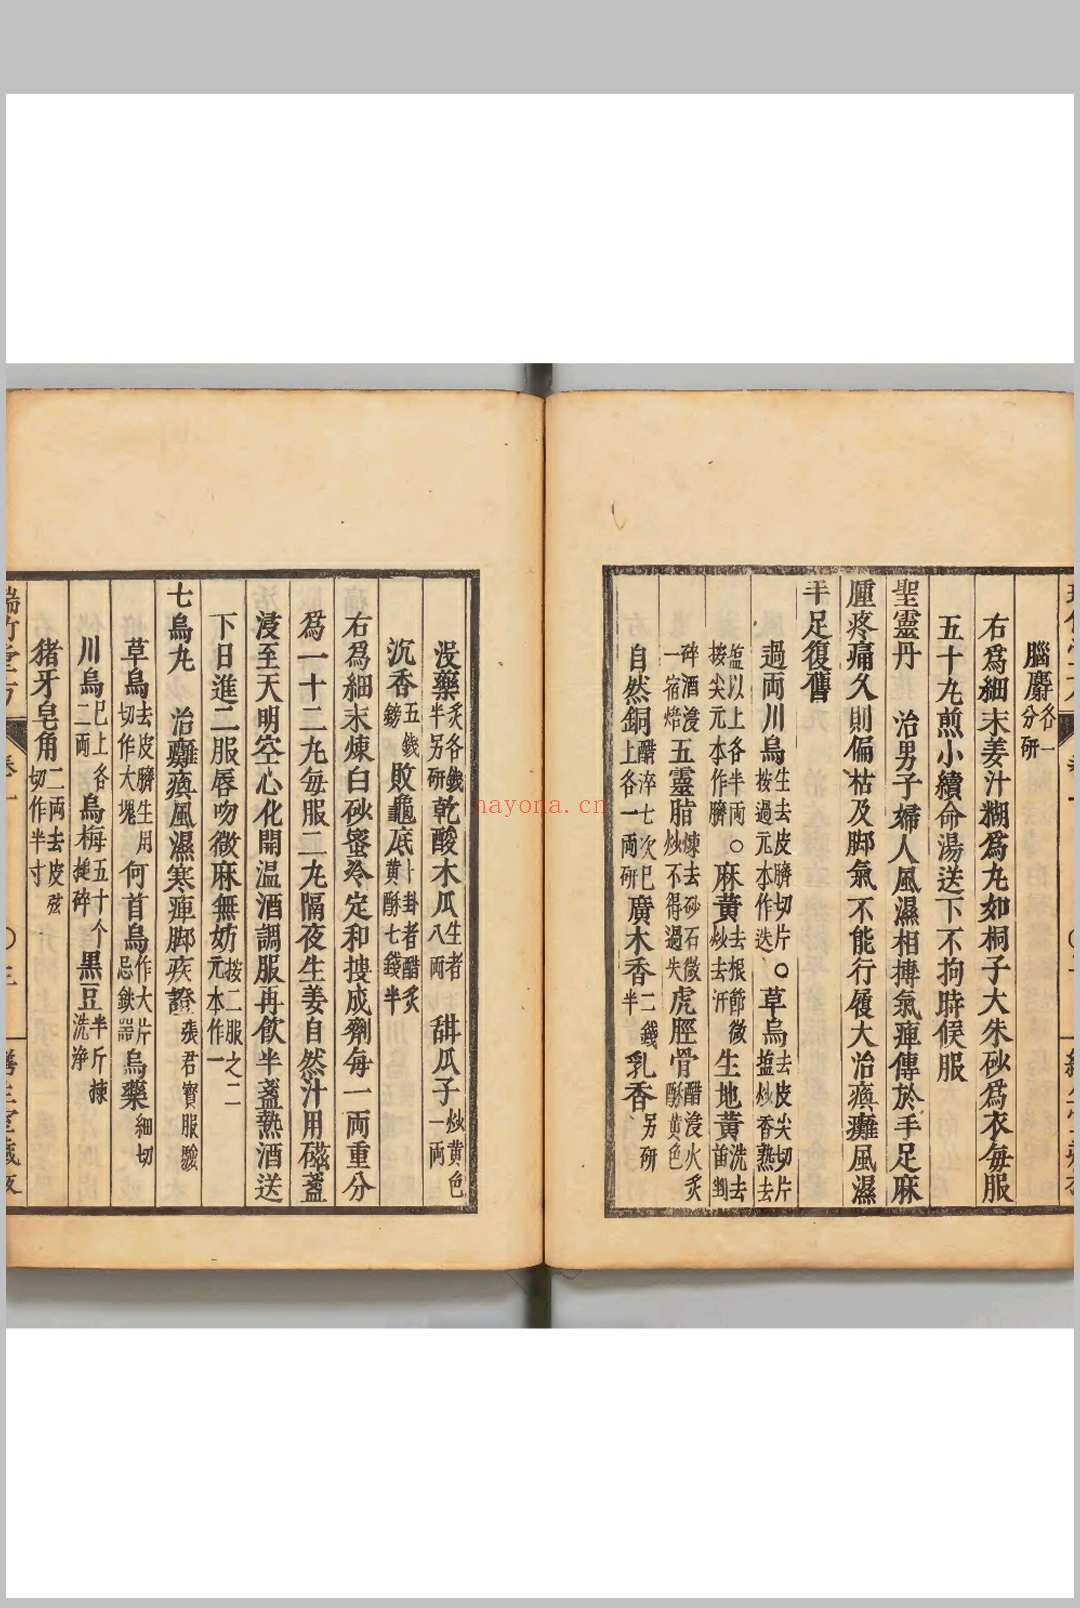 腦麝各一分研
右爲細末姜汁糊爲丸如桐子大朱砂爲衣每服
五十丸煎小續命湯送下不拘時候服
聖靈丹 治男子婦人風濕相搏氣痺傳於手足麻
腫疼痛久則偏枯及脚氣不能行履大治瘓癱風濕
手足復舊
過兩川烏生去皮臍切片按過元本作迭○草烏去皮尖切片塩炒香熟去
塩以上各半兩按尖元本作臍○麻黄去根節微炒去汗生地黄洗去苗剉
碎酒浸一宿焙五靈脂煉去砂石微炒不得過失虎脛骨醋浸火炙酥黄色
自然銅醋淬七次巳上各一兩研廣木香二錢半乳香另研
没藥炙各錢半另研乾酸木瓜生者八兩甜瓜子炒黄色一兩
沉香五錢鎊敗龜底卜卦者醋炙黄酥七錢半
右爲細末煉白砂蜜冷定和搜成劑每一兩重分
爲一十二丸每服二丸隔夜生姜自然汁用磁盞
浸至天明空心化開温酒調服再飲半盞熱酒送
下日進二服唇吻微麻無妨按二服之二元本作一
七烏丸 治癱瘓風濕寒痺脚疾證張君寳服驗
草烏去皮臍生用切作大塊何首烏作大片忌鉄噐烏藥細切
川烏巳上各二兩烏梅五十个搥碎黒豆半斤揀洗浄
猪牙皂角二両去皮弦切作半寸
瑞竹堂方 卷一
nayona.cn